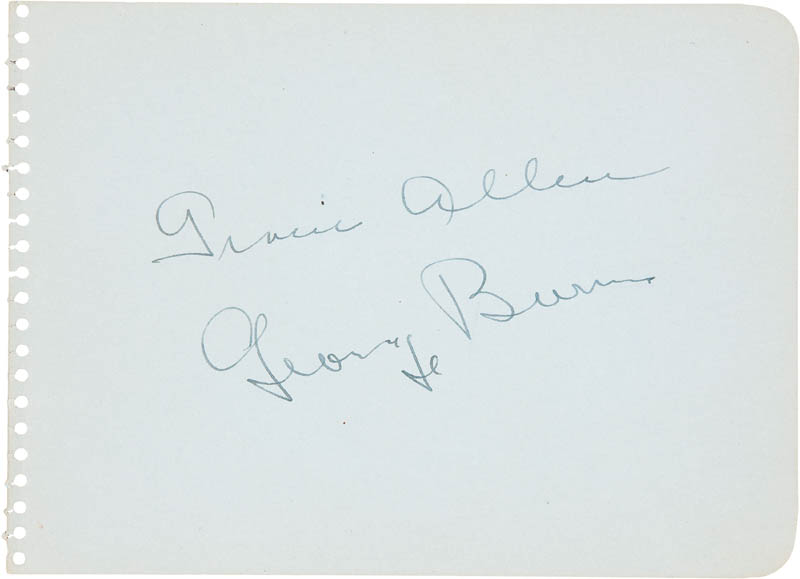 Gracie Allen
George Burns